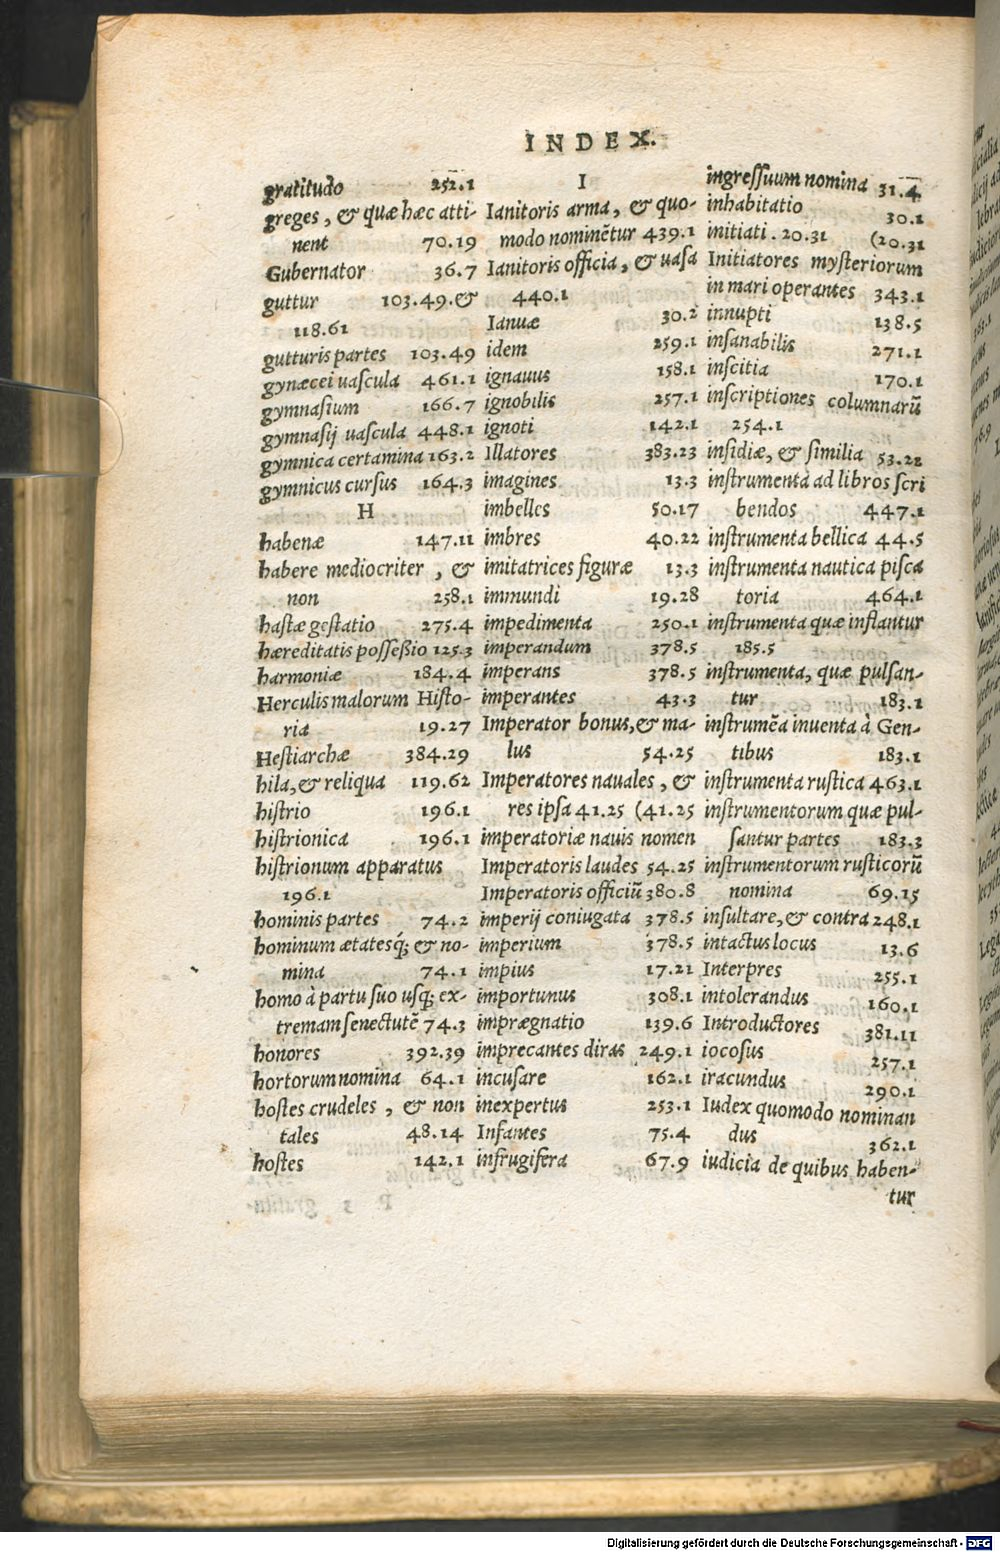 INDEX.
gratitudo 252.1
greges, & quæ hæc atti-
nent 70.19
Gubernator 36.7
guttur 103.49. &
118.61
gutturis partes 103.49
gynæcei uascula 461.1
gymnasium 166.7
gymnasij uascula 448.1
gymnica certamina 163.2
gymnicus cursus 164.3
H
habenæ 147.11
habere mediocriter, &
non 258.1
hastæ gestatio 275.4
hæreditatis possessio 125.3
harmoniæ 184.4
Herculis malorum Histo-
ria 19.27
Hestiarchæ 384.29
hila, & reliqua 119.62
histrio 196.1
histrionica 196.1
histrionum apparatus
196.1
hominis partes 74.2
hominum ætatesq́; & no-
mina 74.1
homo à partu suo usq; ex-
tremam senectutẽ 74.3
honores 392.39
hortorum nomina 64.1
hostes crudeles, & non
tales 48.14
hostes 142.1
I
Ianitoris arma, & quo-
modo nominẽtur 439.1
Ianitoris officia, & uasa
440.1
Ianuæ 30.2
idem 259.1
ignauus 158.1
ignobilis 257.1
ignoti 142.1
Illatores 383.23
imagines 13.3
imbelles 50.17
imbres 40.22
imitatrices figuræ 13.3
immundi 19.28
impedimenta 250.1
imperandum 378.5
imperans 378.5
imperantes 43.3
Imperator bonus, & ma-
lus 54.25
Imperatores nauales, &
res ipsa 41.25 (41.25
imperatoriæ nauis nomen
Imperatoris laudes 54.25
Imperatoris officiũ 380.8
imperij coniugata 378.5
imperium 378.5
impius 17.21
importunus 308.1
imprægnatio 139.6
imprecantes diras 249.1
incusare 162.1
inexpertus 253.1
Infantes 75.4
infrugifera 67.9
ingressuum nomina 31.4
inhabitatio 30.1
initiati. 20.31 (20.31
Initiatores mysteriorum
in mari operantes 343.1
innupti 138.5
insanabilis 271.1
inscitia 170.1
inscriptiones columnarũ
254.1
insidiæ, & similia 53.22
instrumenta ad libros scri
bendos 447.1
instrumenta bellica 44.5
instrumenta nautica pisca
toria 464.1
instrumenta quæ inflantur
185.5
instrumenta, quæ pulsan-
tur 183.1
instrumẽa inuenta à Gen-
tibus 183.1
instrumenta rustica 463.1
instrumentorum quæ pul-
santur partes 183.3
instrumentorum rusticorũ
nomina 69.15
insultare, & contra 248.1
intactus locus 13.6
Interpres 255.1
intolerandus 160.1
Introductores 381.11
iocosus 257.1
iracundus 290.1
Iudex quomodo nominan
dus 362.1
iudicia de quibus haben-
tur
Digitalisierung gefördert durch die Deutsche Forschungsgemeinschaft - DFG